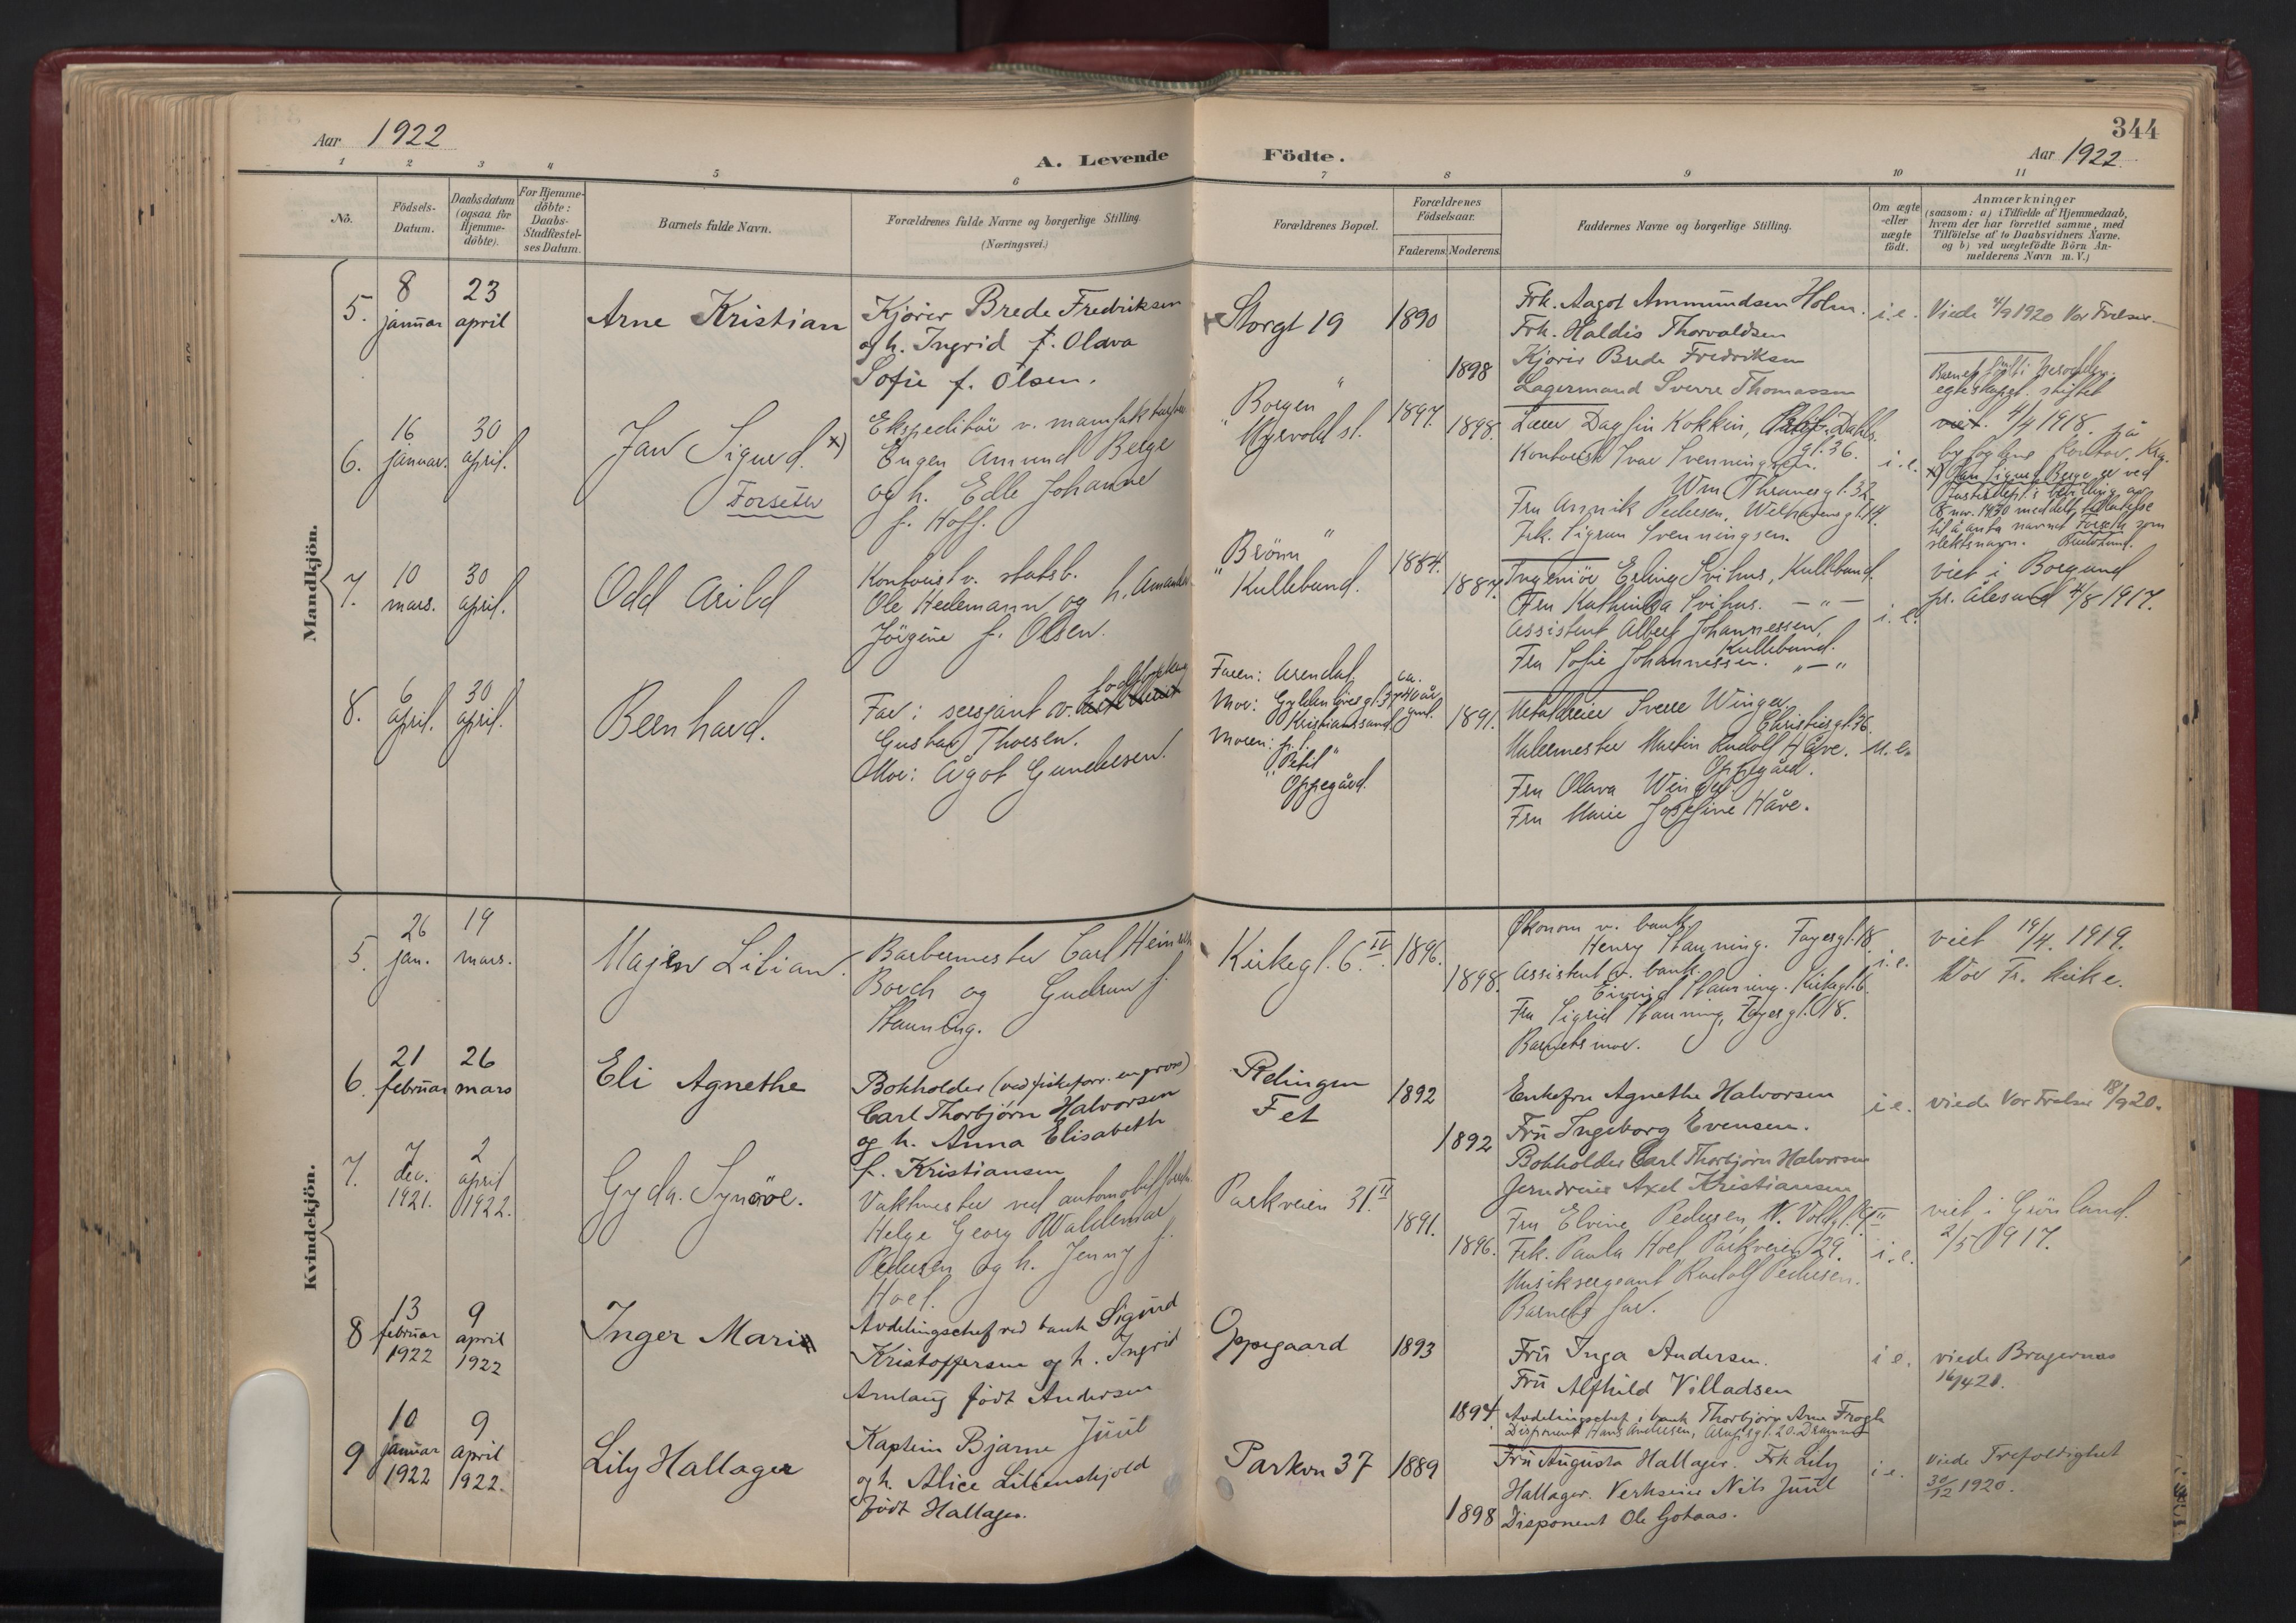 Aar 1922
A. Levende Födte.
344
Aar 1922
1 2 3 4 5 6 7 8 9 10 11
No.
Födsels-
Datum.
Daabsdatum
(ogsaa for
Hjemme-
döbte).
For Hjemme-
döbte:
Daabs-
Stadfæstel-
ses Datum.
Barnets fulde Navn.
Forældrenes fulde Navne og borgerlige Stilling.
(Næringsvei.)
Forældrenes Bopæl.
Forældrenes
Födselsaar.
Faderens. Moderens.
Faddernes Navne og borgerlige Stilling.
Om ægte
eller
uægte
født.
Anmærkninger
(saasom: a) i Tilfælde af Hjemmedaab,
hvem der har forrettet samme, med
Tilföielse af to Daabsvidners Navne.
og b) ved uægtefödte Börn An-
melderens Navn m. V.)
Mandkjön.
5.
8
januar
23
april
Arne Kristian
Kjører Brede Fredriksen
og h. Ingrid f. Olava
Sofie f. Olsen.
Storgt 19
1890
1898
Frk. Aagot Ammundsen Holm.
Frk. Haldis Thorvaldsen
Kjører Brede Fredriksen
Lagermand Sverre Thomassen
i.e.
Viede 4/9 1920 Vor Frelser.
6.
16
januar.
30
april.
Jan Sigurd. x)
Forseter
Ekspeditör v.
Eugen Amund Berge
og h. Edle Johanne
f. Hoff.
Borgen
Myrvold st.
1897.
1898.
Lærer Dagfin Kokkin, Dahls
gt. 36.
Kontorist Ivar Svenningsen.
Wm Thranesgt. 32
Fru Annik Pedersen, Welhavensgt. 14.
Frk. Sigrun Svenningsen.
i.e.
Barnet født i
egteskapet stiftet
viet. 4/4 1918. på
byfogdens kontor, Kra.
x) Jan Sigurd Berge er ved
Justisdept.s bevilling av
8 nov. 1930 meddelt tillatelse
til å anta navnet Forseth som
slektsnavn.
7.
10
mars.
30
april.
Odd Arild
Kontorist v. statsb.
Ole Hedemann og h. Amanda
Jörgine f. Olsen.
Brönn
Kullebund.
1884.
1887.
Ingeniör Erling Svihus, Kullebund.
Fru Kathinka Svihus. — " —
Assistent Albert Johannessen,
Kullebund.
Fru Sofie Johannessen. " — "
i.e.
viet i Borgund
pr. Ålesund 4/8 1917.
8.
6
april.
30
april.
Bernhard.
Far: sersjant v.
Gustav Thorsen.
Mor: Ågot Gundersen.
Faren: Arendal.
Mor: Gyldenlövesgt. 37
Kristianssand
Moren: p. t.
"Petit"
Oppegård.
ca.
40 år
gml.
1891.
Metaldreier Sverre Winger.
Christiesgt. 36.
Malermester Martin Rudolf Håve.
Oppegård.
Fru Olava Winger.
Fru Marie Josefine Håve.
u.e.
Kvindekjön.
5.
26
jan.
19
mars.
Majen Lilian.
Barbermester Carl Heinrich
Borch og Gudrun f.
Stauning.
Kirkegt. 6. IV
1896.
1898.
Økonom v. bank
Henry Stauning. Fayesgt. 18.
Assistent v. bank.
Eivind Stauning. Kirkegt. 6.
Fru Sigrid Stauning, Fayesgt. 18.
Barnets mor.
i.e.
viet 19/4. 1919.
Vor Fr. kirke.
6.
21
februar
26
mars
Eli Agnethe
Bokholder (ved fiskeforr. engros)
Carl Thorbjørn Halvorsen
og h. Anna Elisabeth
f. Kristiansen
Relingen
Fet
1892
1892
Enkefru Agnethe Halvorsen
Fru Ingeborg Evensen.
Bokholder Carl Thorbjørn Halvorsen
Jerndreier Axel Kristiansen
i e.
viede Vor Frelser 18/9 20.
7.
7
dec.
1921.
2
april
1922.
Gyda Synöve.
Vaktmester ved automobil
Helge Georg Waldemar
Pedersen og h. Jenny f.
Hoel.
Parkveien 31. II
1891.
1896.
Fru Elvine Pedersen, N. Voldgt.
Frk. Paula Hoel, Parkveien 29.
Musiksergeant Rudolf Pedersen.
Barnets far.
i.e.
viet i Grönland.
2/5 1917.
8
13
februar
1922
9
april
1922
Inger Marie
Avdelingschef ved bank Sigurd
Kristoffersen og h. Ingrid
Arnlaug født Andersen
Oppegaard
1893
1894
Fru Inga Andersen.
Fru Alfhild Villadsen
Avdelingschef i bank Thorbjørn Arne
Disponent Hans Andersen, 20. Drammen
i e.
viede Bragernes
16/4 21.
9
10
januar
1922
9
april
1922.
Lily Hallager
Kaptein Bjarne Juul
og h. Alice Lilienskjold
født Hallager.
Parkvn 37
1889
1898
Fru Augusta Hallager. Frk Lily
Hallager. Verkseier Nils Juul
Disponent Ole Gotaas.
i e.
viede Trefoldighet
30/12 1920.